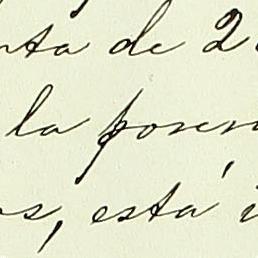 nta de 2
la posesi
os, está i